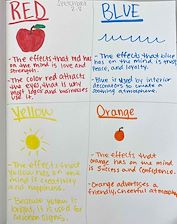 RED
- The effects that red has on the mind is love and strength.
- The color red attracts the eyes, that is why most logos and businesses use it.
BLUE
- The effects that blue has on the mind is trust, peace, and loyalty.
- Blue is used by interior decorators to create a soothing atmosphere.
Yellow
- The effects that yellow has on the mind is creativity and happiness.
- Because yellow is bright, it is used for caution signs.
Orange
- The effects that orange has on the mind is success and confidence.
- Orange advertises a friendly, cheerful atmosphere